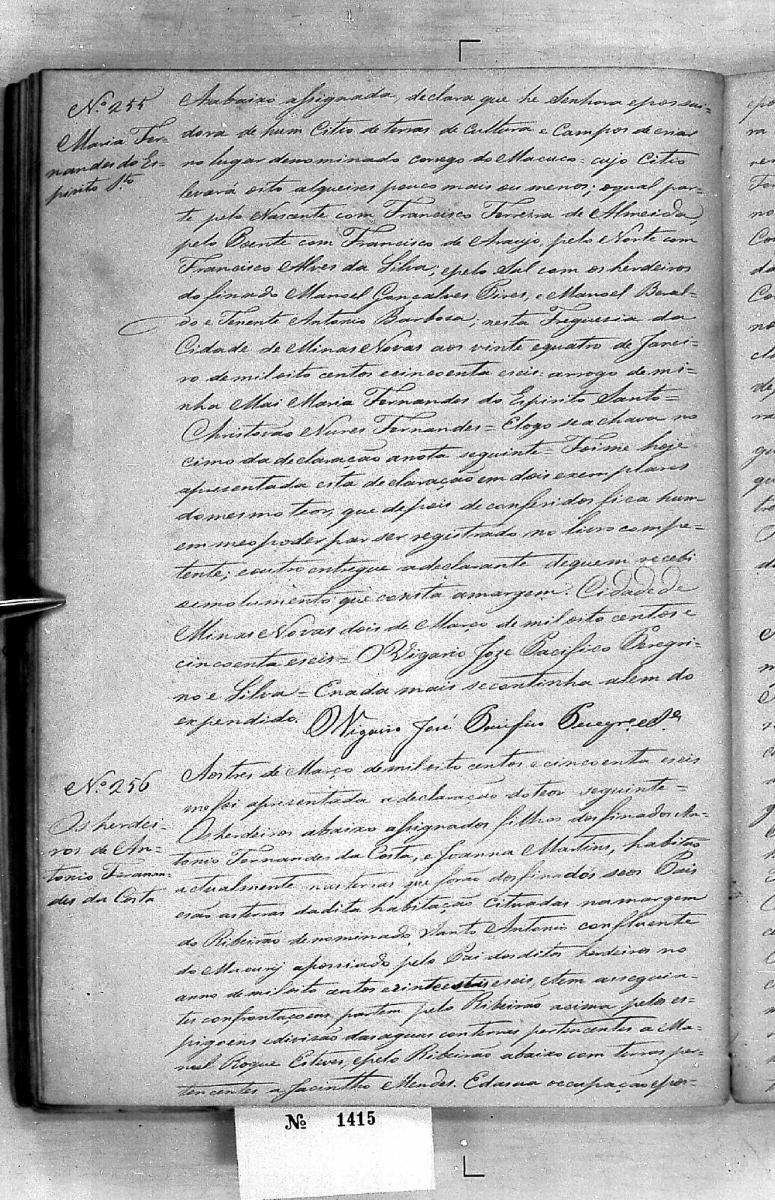 Nº 255
Maria Fer-
nandes do Es-
pirito Sto
A abaixo assignada, declara que he Senhora e possui-
dora de hum Citio de terras de Cultura e Campos de criar
no lugar denominado corrego do Macuco = cujo Citio
levará oito alqueires pouco mais ou menos; o qual par-
te pelo Nascente com Francisco Ferreira de Almeida,
pelo Poente com Francisco de Araujo, pelo Norte com
Francisco Alves da Silva; e pelo Sul com os herdeiros
do finado Manoel Gonçalves Pires, e Manoel Beral-
do e Tenente Antonio Barbosa; nesta Freguesia da
Cidade de Minas Novas aos vinte e quatro de Janei-
ro de mil oito centos e cincoenta e seis. arrogo de mi-
nha Mai Maria Fernandes do Espirito Santo =
Christovão Nunes Fernandes = E logo se achava no
cimo da declaração a nota seguinte = Foi me hoje
apresentada esta declaração em dois exemplares
do mesmo teor, que depois de conferidos fica hum
em meo poder par ser registrado no livro compe-
tente; e outro entregue a declarante de quem recebi
o emolumento que consta a margem. Cidade de
Minas Novas dois de Março de mil oito centos e
cincoenta e seis = O Vigario Joze Pacifico Peregri-
no e Silva = E nada mais se continha alem do
expendido. O Vigario José Pacifico Peregr.º e Sª
Nº 256
Os herdei-
ros de An-
tonio Fernan-
des da Costa
Aos tres de Março de mil oito centos e cincoenta e seis
me foi apresentada a declaração do teor seguinte =
Os herdeiros abaixo assignados filhos dos finados An-
tonio Fernandes da Costa, e Joanna Martins, habitão
actualmente nas terras que forão dos finados seos Pais
e são as terras da dita habitação cituadas na margem
do Ribeirão denominado Santo Antonio confluente
do Mucury apossiado pelo Pai dos ditos herdeiros no
anno de mil oito centos e vinte e seis, e tem as seguin-
tes confrontaçoens, partem pelo Ribeirão acima pelos es-
pigoens e divisão das aguas com terras pertencentes a Ma-
nuel Roque Esteves, e pelo Ribeirão abaixo com terras per-
tencentes a Jacintho Mendes. E da sua occupação e per-
Nº 1415